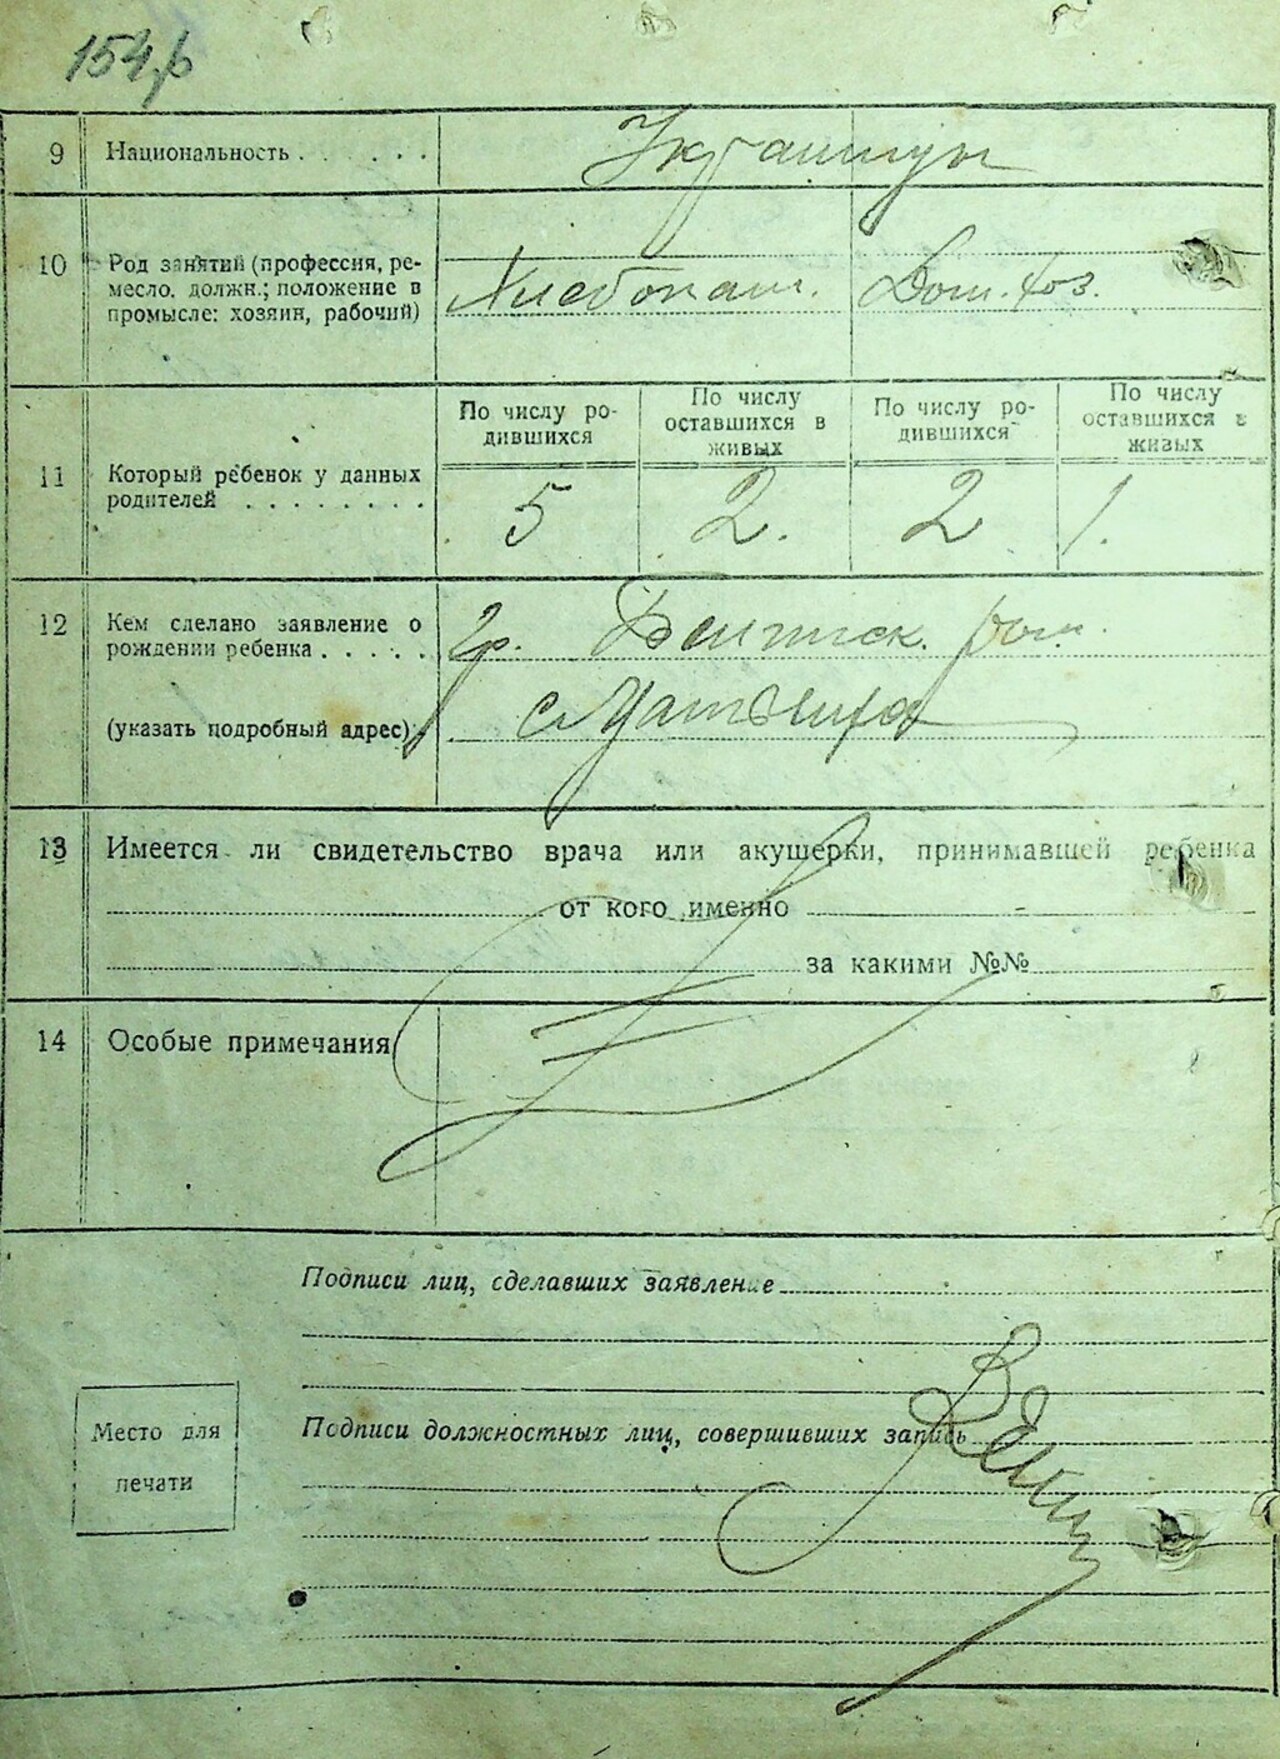 154
9 Национальность . . . . . . Украинцы
10 Род занятий (профессия, ре-
месло. должн.; положение в
промысле: хозяин, рабочий)
Хлебопаш. Дом. хоз.
По числу ро-
дившихся
По числу
оставшихся в
живых
По числу ро-
дившихся
По числу
оставшихся в
живых
11 Который ребенок у данных
родителей . . . . . . . .
5 2. 2 1.
12 Кем сделано заявление о
рождении ребенка . . . . .
(указать подробный адрес)
гр.
13 Имеется ли свидетельство врача или акушерки, принимавшей ребенка
от кого именно
за какими №№
14 Особые примечания
Подписи лиц, сделавших заявление
Подписи должностных лиц, совершивших запись
Место для
печати